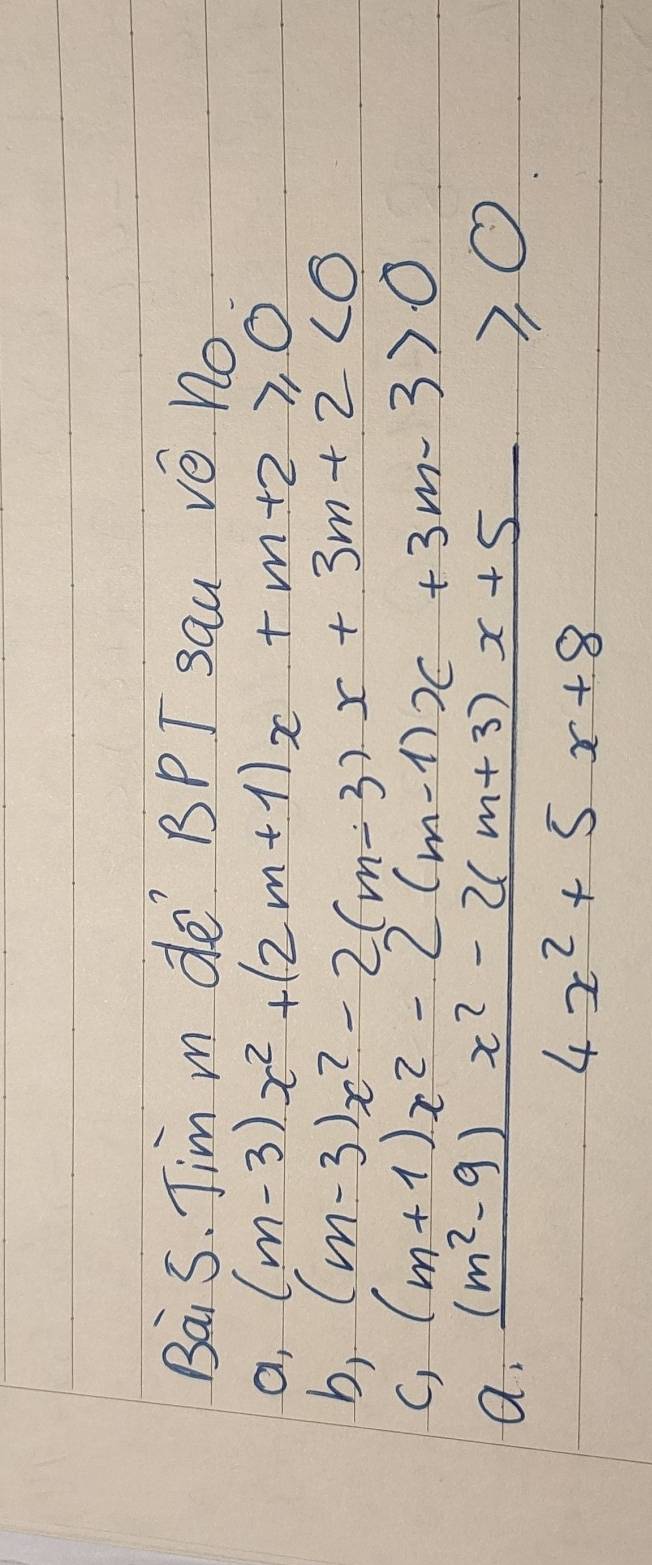 Bài 5. Tìm m để BPT sau vô no.
a, (m-3)x² + (2m+1)x + m+2 ⩾ 0
b, (m-3)x² - 2(m-3)x + 3m+2 < 0
c, (m+1)x² - 2(m-1)x + 3m-3 > 0
d. (m²-9) x² - 2(m+3) x + 5 ⩾ 0
4x² + 5x + 8